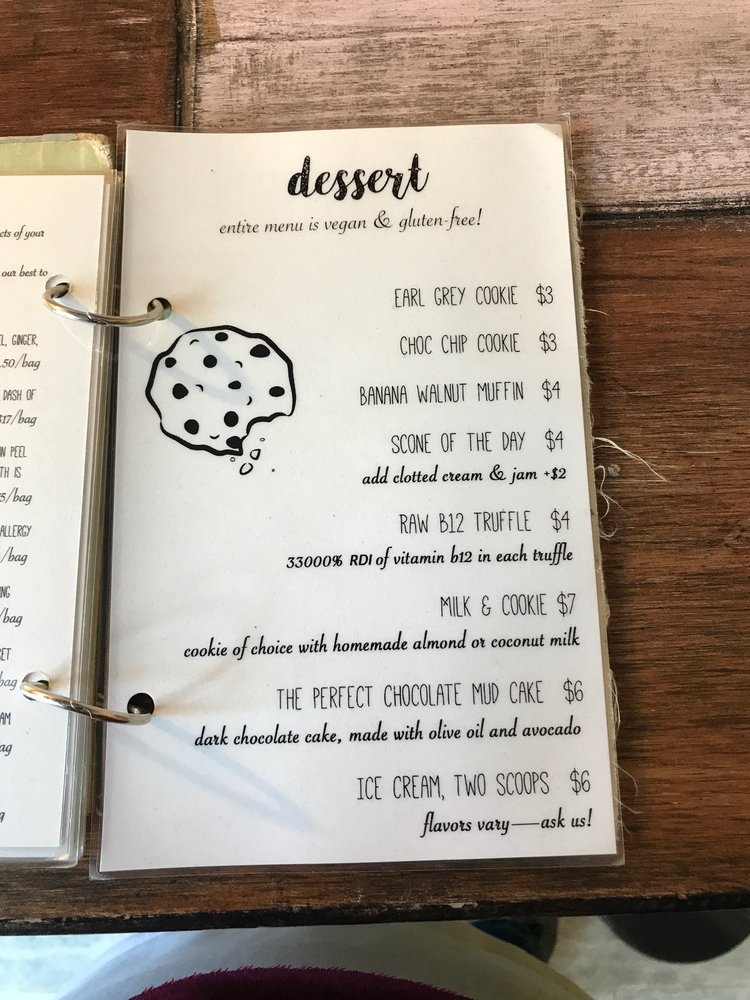 dessert
entire menu is vegan & gluten-free!
EARL GREY COOKIE $3
CHOC CHIP COOKIE $3
BANANA WALNUT MUFFIN $4
SCONE OF THE DAY $4
add clotted cream & jam +$2
RAW B12 TRUFFLE $4
33000% RDI of vitamin b12 in each truffle
MILK & COOKIE $7
cookie of choice with homemade almond or coconut milk
THE PERFECT CHOCOLATE MUD CAKE $6
dark chocolate cake, made with olive oil and avocado
ICE CREAM, TWO SCOOPS $6
flavors vary—ask us!
cts of your
our best to
GINGER,
.50/bag
DASH OF
$17/bag
N PEEL
TH IS
5/bag
ALLERGY
/bag
NG
/bag
RET
bag
AM
ag